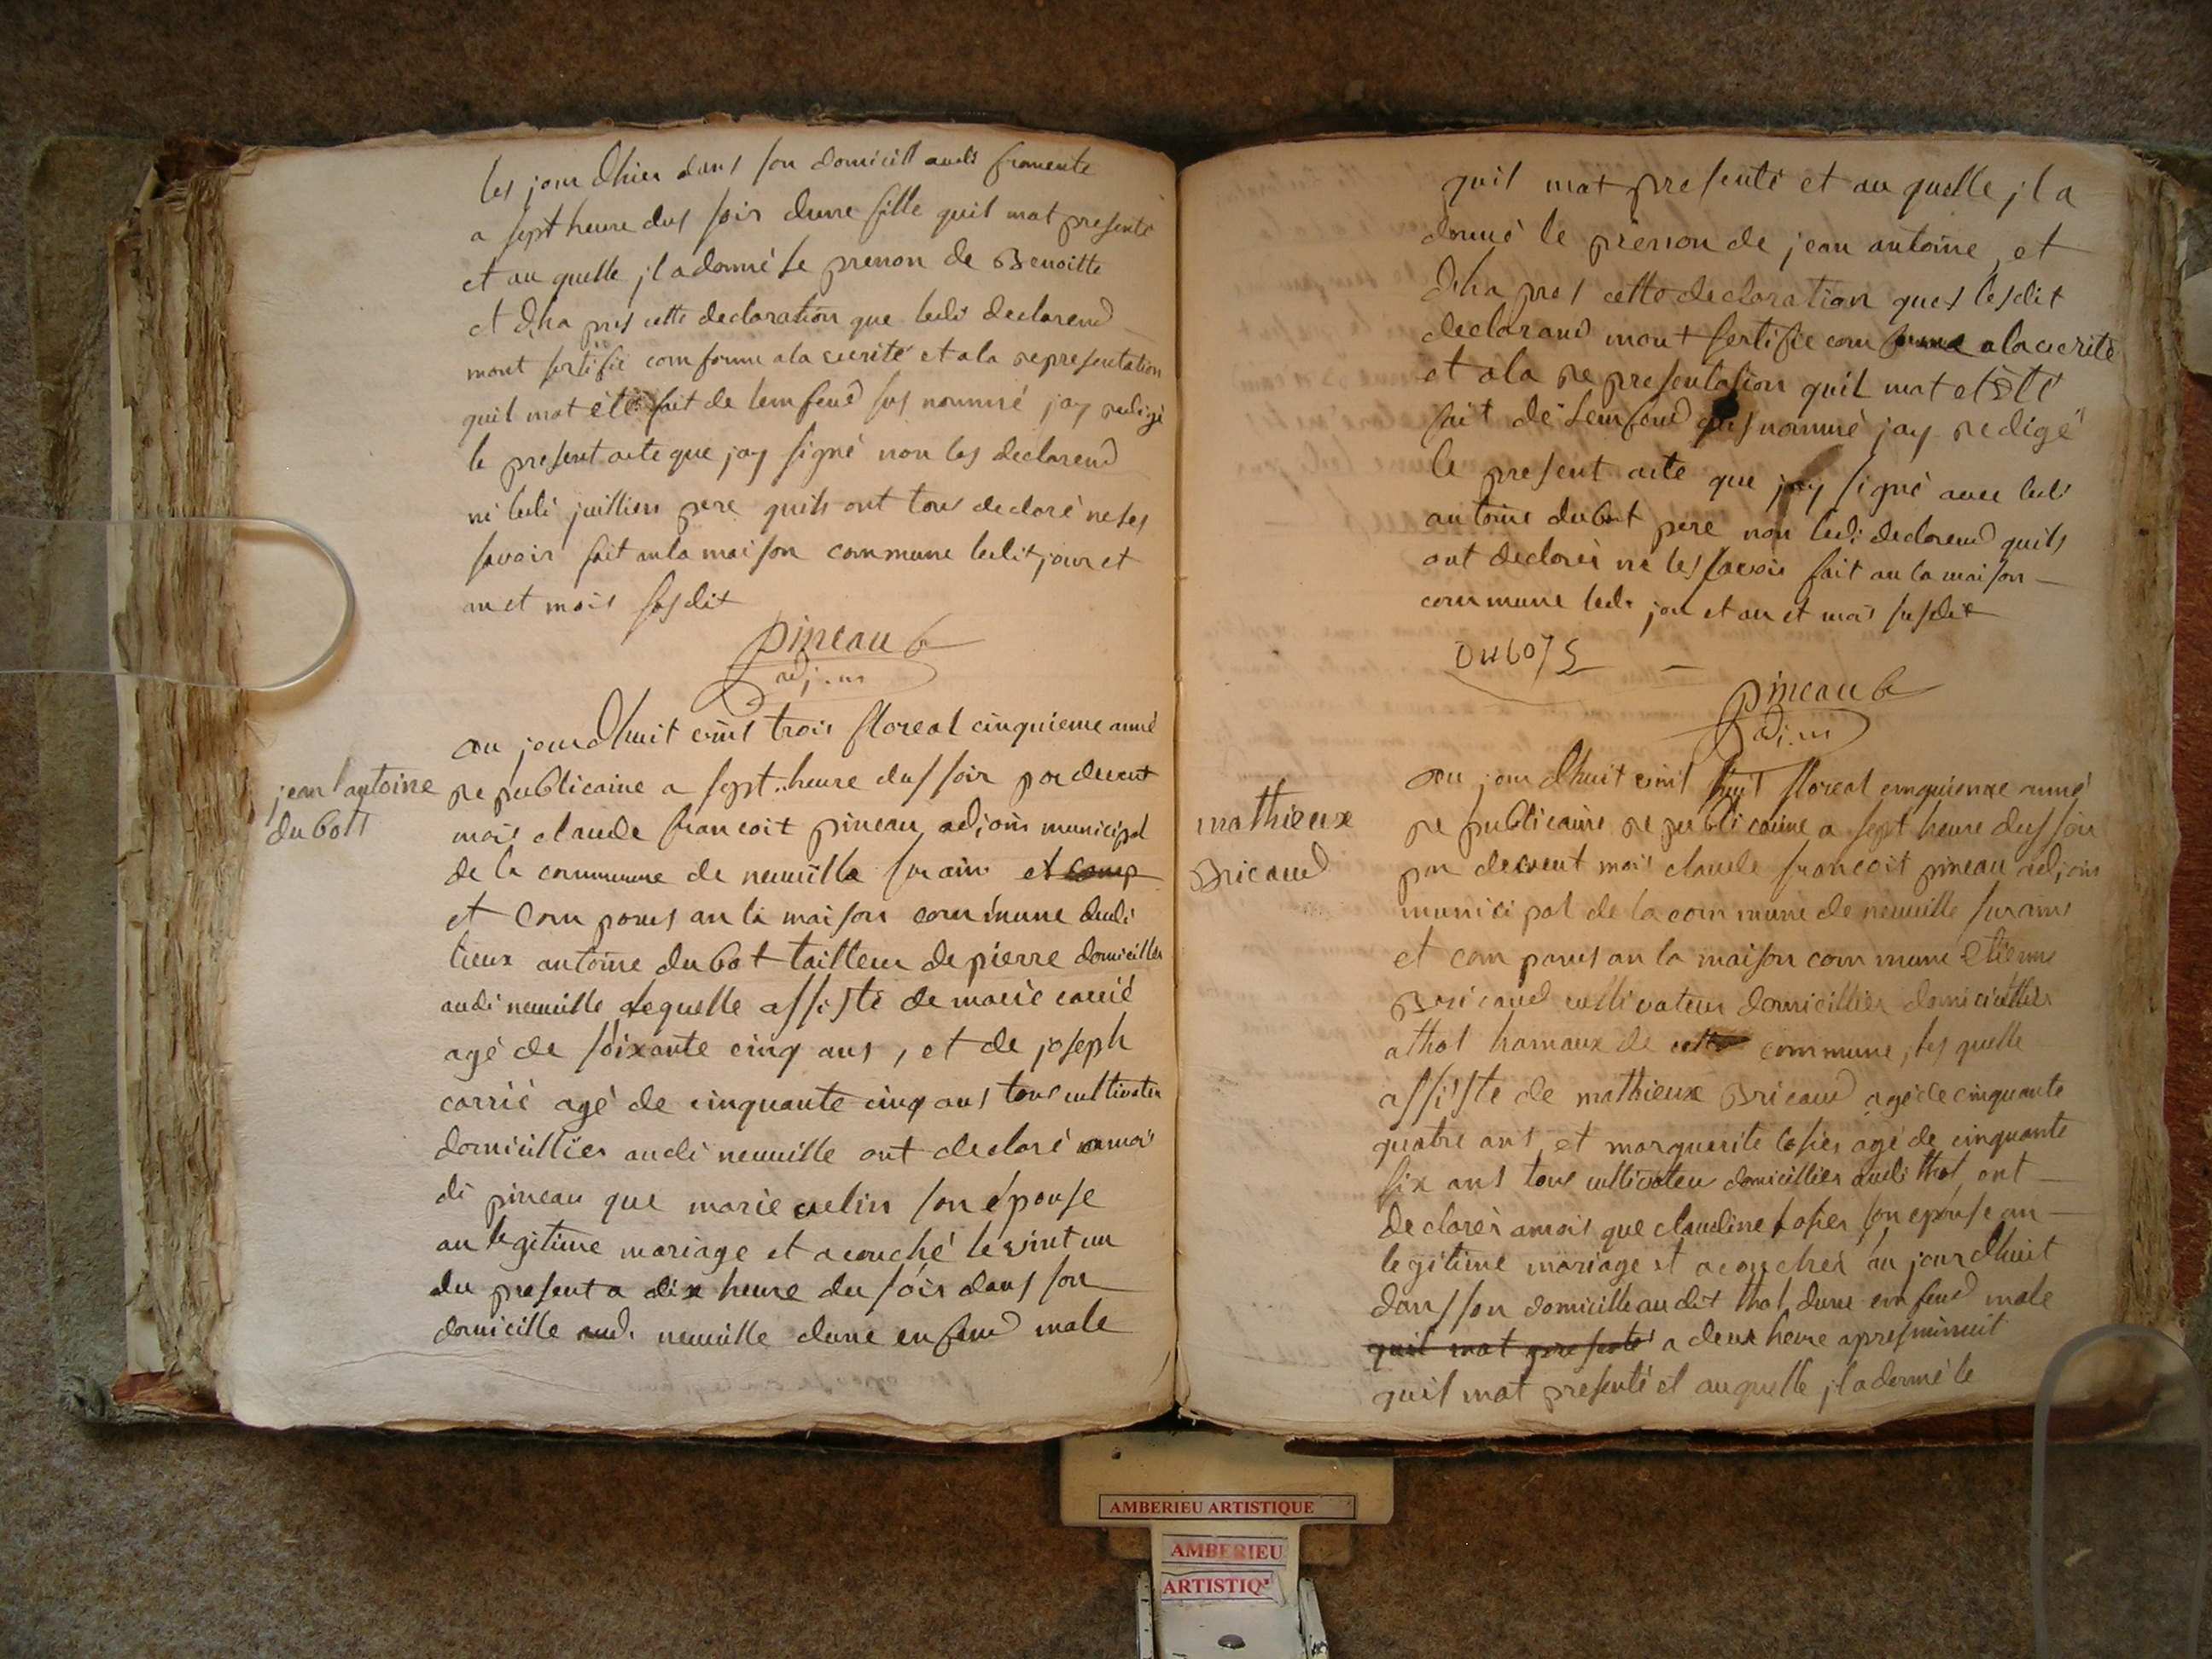 les jour dhier dans son domicill audi fromente
a sept heure dus soir dune fille quil mat presenté
et au quelle jl a donné le prenon de Benoitte
et dha pres cette declaration que ledi declarend
mont sertifie com forme a la verité et a la representation
quil mat été fait de lemfend sus nommé jay redigé
le present acte que jay signé non les declarend
ni ledi juillien pere quils ont tous declaré ne les
savoir fait an la maison commune ledit jour et
an et mois susdit
pineau
adj.m
au jour dhuit vint trois floreal cinquieme anné
jean antoine
du bott
republicaine a sept heure dus soir par devent
mois claude francoit pineau adjoin municipal
de la commune de neuville sur ain et comp
et com parus an la maison commune dudi
lieux antoine dubot tailleur de pierre domicillier
audi neuville lequelle assisté de marie carrié
agé de soixante cinq ans, et de joseph
carrié agé de cinquante cinq ans tous cultivateur
domicillier audi neuville ont declaré a moi
di pineau que marie velin son épouse
an legitime mariage et acouché le vint un
du present a dix heure du soir dans son
domicille audi neuville dune enfend male
quil mat presenté et au quelle jl a
donné le prenon de jean antoine, et
dha pres cette declaration ques lesdit
declarand mont sertifie com forme a la verité
et a la representation quil mat et été
fait de lemfend sus nommé jay redigé
le present acte que jay signé avec ledi
antoine dubot pere non ledi declarend quils
ont declarér ne les savoir fait an la maison
commune ledi jour et an et mois susdit
Dubot
pineau
adj.m
au jour dhuit vint huit floreal cinquieme anné
mathieux
Bricaud
republicaine republicaine a sept heure dus soir
par devent mois claude francoit pineau adjoin
municipal de la commune de neuville sur ains
et com parus an la maison commune etienne
Bricaud cultivateur domicillier domicillier
a thol hamaux de cette commune, les quelle
assisté de mathieux Bricaud agé de cinquante
quatre ans et marguerite agé de cinquante
six ans tous cultivateur domicillier audi thol ont
declarér a mois que claudine son epouse an
legitime mariage et acouchér au jour dhuit
dans son domicille audit thol dune emfend male
quil mat presenté a deux heure apres minuit
quil mat presenté et auquelle jl a donné le
AMBERIEU ARTISTIQUE
AMBERIEU
ARTISTIQ